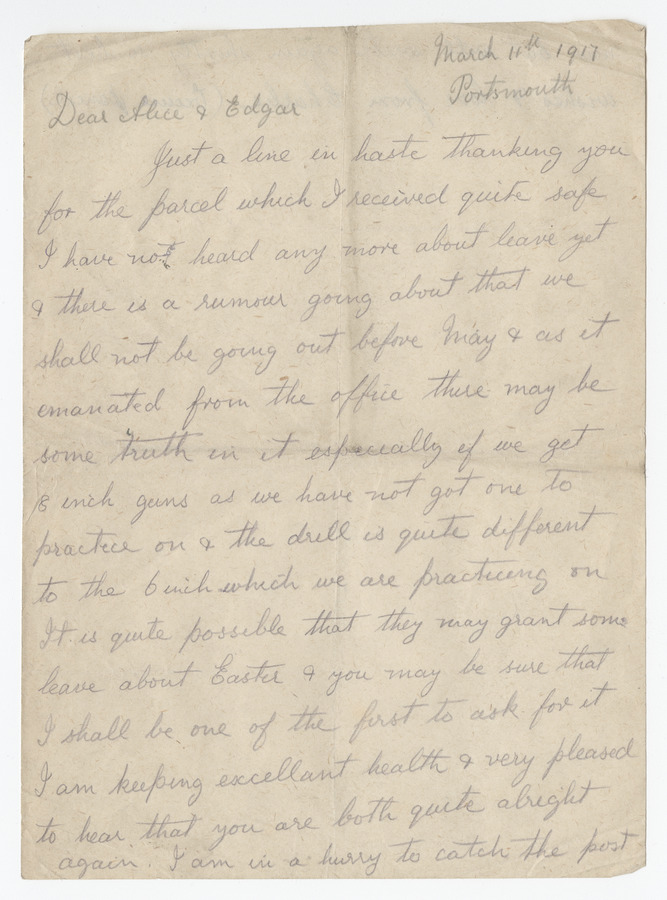 March 11th 1917
Portsmouth
Dear Alice & Edgar
Just a line in haste thanking you
for the parcel which I received quite safe.
I have not heard any more about leave yet
& there is a rumour going about that we
shall not be going out before May & as it
emanated from the office there may be
some truth in it especially if we get
8 inch guns as we have not got one to
practice on & the drill is quite different
to the 6 inch which we are practicing on
It is quite possible that they may grant some
leave about Easter & you may be sure that
I shall be one of the first to ask for it
I am keeping excellant health & very pleased
to hear that you are both quite alright
again. I am in a hurry to catch the post